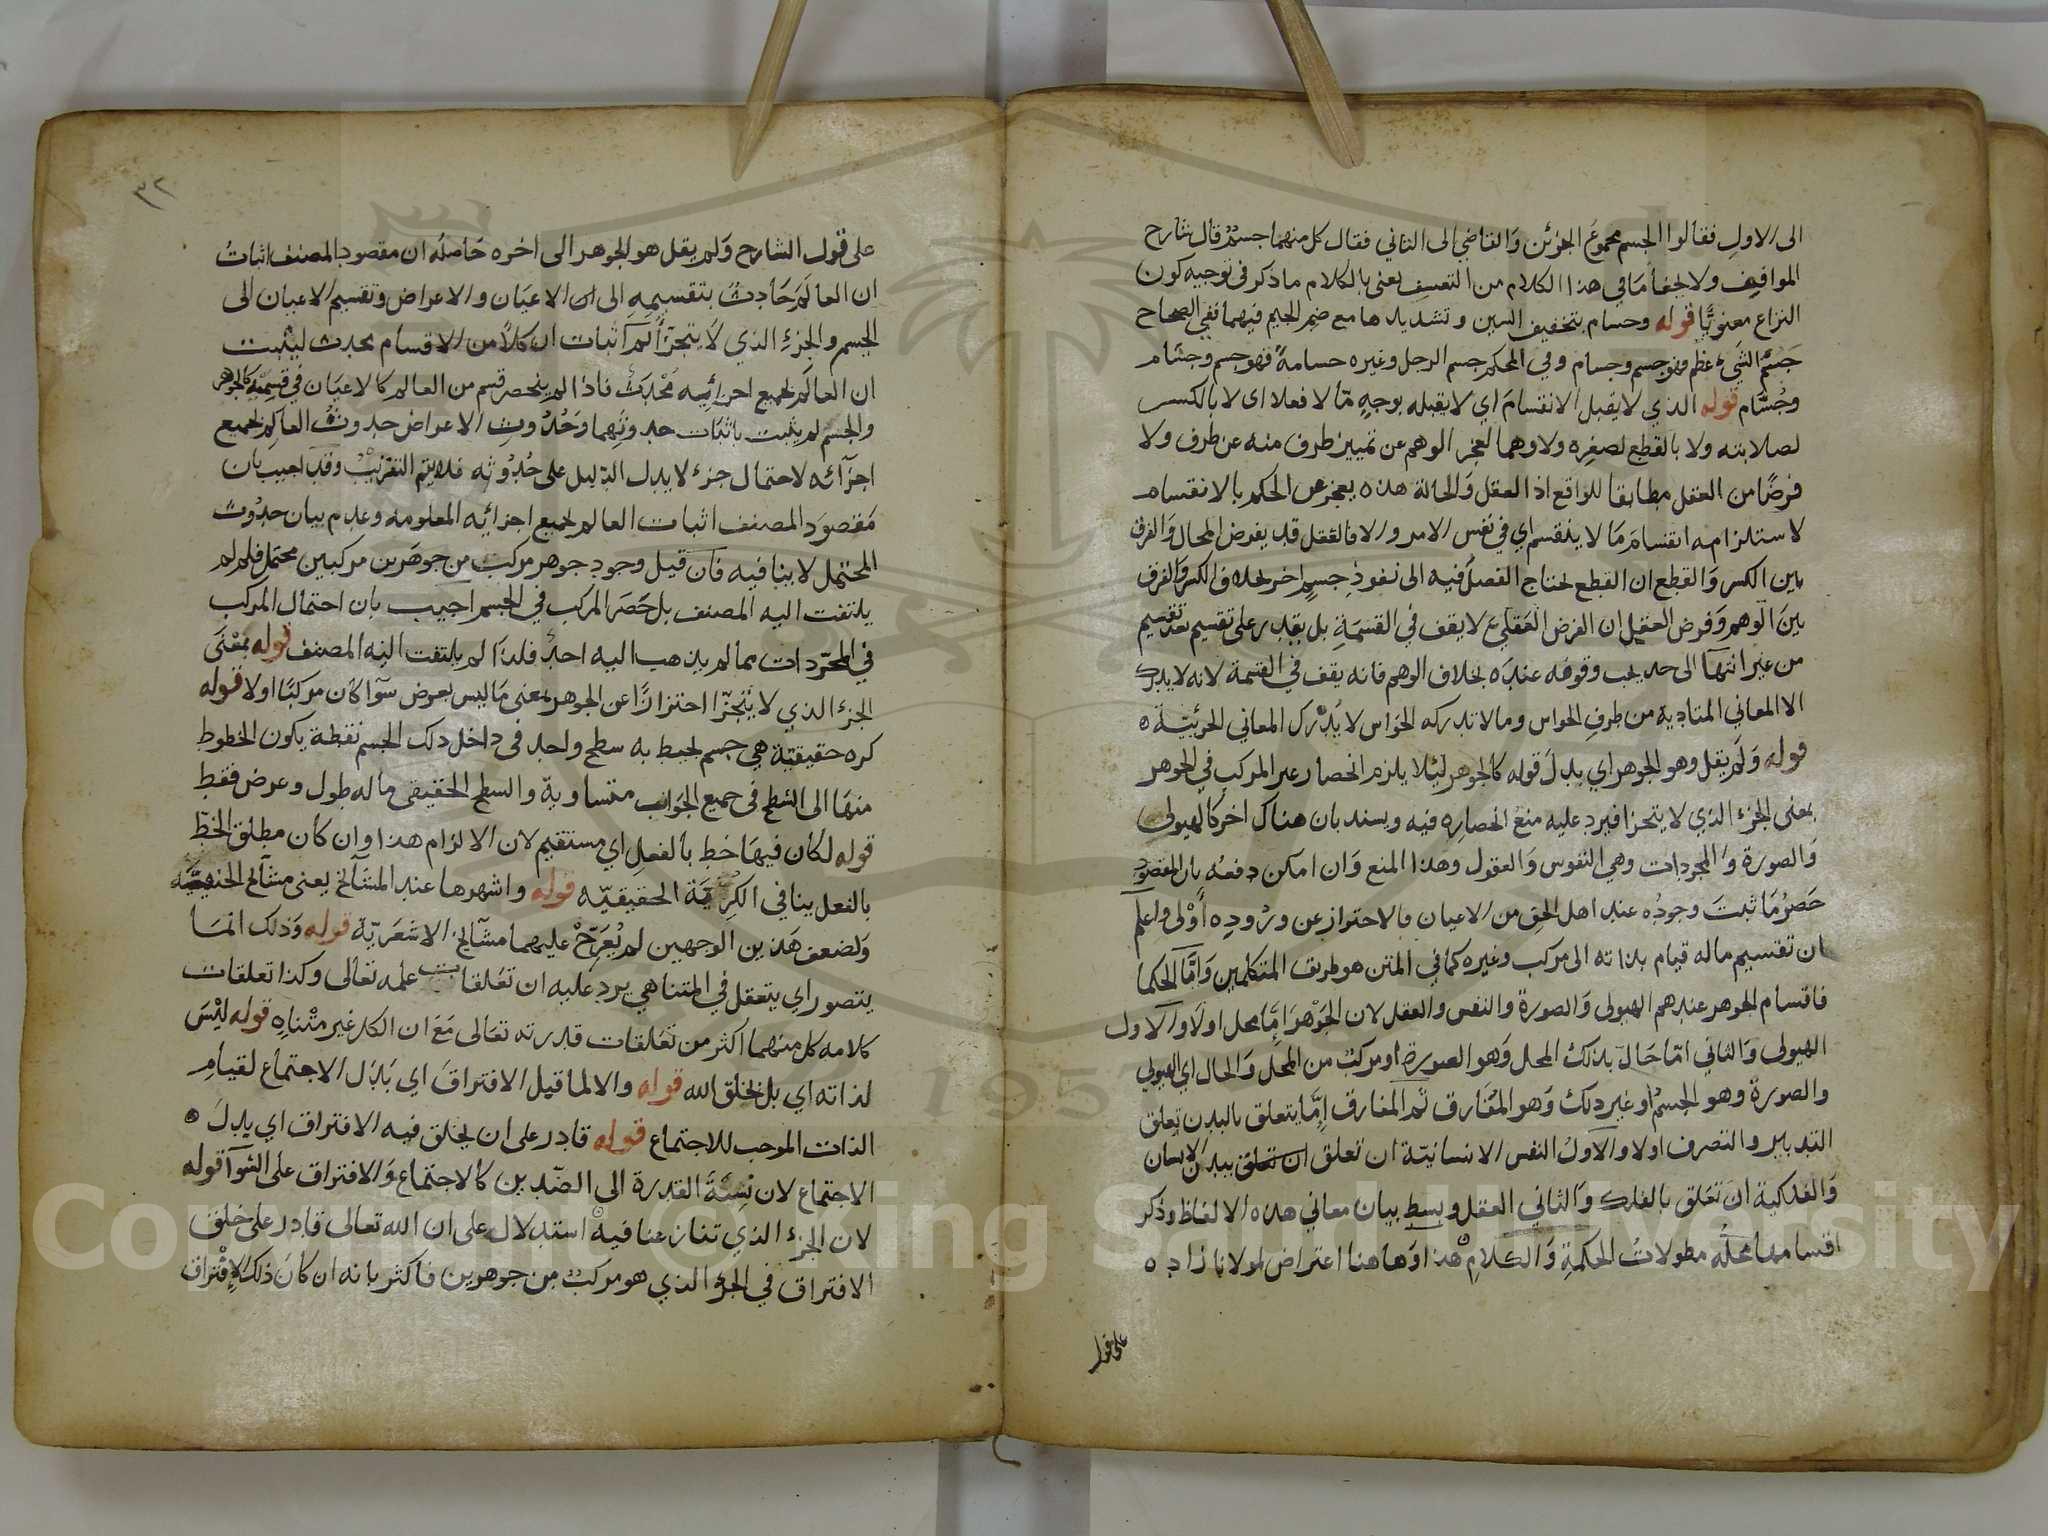 الى الاول فقالوا الجسم مجموع الجزئين والقاضي الى الثاني فقال كل منهما جسم قال شارح
المواقف ولا يخفا ما في هذا الكلام من التعسف يعني بالكلام ما ذكر في توجيه كون
النزاع معنويا قوله وحسام بتخفيف السين وتشديدها مع ضم الجيم فيهما نفي الصحاح
جسم الشيء عظم فهو جسم وجسام وفي المحكم جسم الرجل وغيره جسامة فهو جسم وجسام
وجسام قوله الذي لا يقبل الانقسام اي لا يقبله بوجه ما لا فعلا اى لا بالكسر
لصلابته ولا بالقطع لصغره ولا وهما لعجز الوهم عن تمييز طرف منه عن طرف ولا
فرضا من العقل مطابقا للواقع اذ العقل والحالة هذه يعجز عن الحكم بالانقسام
لاستلزامه انقسام ما لا ينقسم اي في نفس الامر والا فالعقل قد يفرض المحال والفرق
بين الكسر والقطع ان القطع يحتاج الفصل فيه الى نفوذ جسم اخر بخلاف الكسر والفرق
بين الوهم وفرض العقل ان الفرض العقلي لا يقف في القسمة بل يقدر على تقسيم بعد تقسيم
من غير انتهآ الى حد يجب وقوفه عنده بخلاف الوهم فانه يقف في القسمة لانه لا يدرك
الا المعاني المتادية من طرف الحواس وما لا تدركه الحواس لا يدرك المعاني الجزئية ه
قوله ولم يقل وهو الجوهر اي بدل قوله كالجوهر لئلا يلزم انحصار غير المركب في الجوهر
بمعنى الجزء الذي لا يتجزا فيرد عليه منع انحصاره فيه ويسند بان هناك اخر كالهيولي
والصورة والمجردات وهي النفوس والعقول وهذا المنع وان امكن دفعه بان المقصود
حصر ما ثبت وجوده عند اهل الحق من الاعيان فالاحتراز عن وروده أولى واعلم
ان تقسيم ما له قيام بذاته الى مركب وغيره كما في المتن هو طريق المتكلمين واما الحكما
فاقسام الجوهر عندهم الهيولى والصورة والنفس والعقل لان الجوهر اما محل اولا والاول
الهيولى والثاني اما حال بذلك المحل وهو الصورة او مركب من المحل والحال اي الهيولي
والصورة وهو الجسم او غير ذلك وهو المفارق ثم المفارق اما يتعلق بالبدن تعلق
التدبير والتصرف اولا والاول النفس الانسانية ان تعلق ان تعلق ببدن الانسان
والفلكية ان تعلق بالفلك والثاني العقل وبسط بيان معاني هذه الالفاظ وذكر
اقسامها محله مطولات الحكمة والكلام هذا وهاهنا اعتراض لمولانا زاده ه
على قول
٣٢
على قول الشارح ولم يقل هو الجوهر الى اخره حاصله ان مقصود المصنف اثبات
ان العالم حادث بتقسيمه الى الاعيان والاعراض وتقسيم الاعيان الى
الجسم والجزء الذي لا يتجزأ ثم اثبات ان كلا من الاقسام محدث ليثبت
ان العالم بجميع اجزائيه محدث فاذا لم ينحصر قسم من العالم كالاعيان في قسميه كالجوهر
والجسم لم يثبت باثبات حدوثهما وحدوث الاعراض حدوث العالم بجميع
اجزآئه لاحتمال جزء لا يدل الدليل على حدوثه فلا يتم التقريب وقد اجيب بان
مقصود المصنف اثبات العالم بجميع اجزائيه المعلومة وعدم بيان حدوث
المحتمل لا ينافيه فان قيل وجود جوهر مركب من جوهرين مركبين محتمل فلم لم
يلتفت اليه المصنف بل حصر المركب في الجسم اجيب بان احتمال المركب
في المجردات مما لم يذهب اليه احد فلذا لم يلتفت اليه المصنف قوله بمعنى
الجزء الذي لا يتجزا احترازا عن الجوهر بمعنى ما ليس بعرض سوآ كان مركبا اولا قوله
كره حقيقية هي جسم يحيط به سطح واحد في داخل ذلك الجسم نقطة يكون الخطوط
منها الى السطح في جميع الجوانب متساوية والسطح الحقيقي ما له طول وعرض فقط
قوله لكان فيها خط بالفعل اي مستقيم لان الالزام هذا وان كان مطلق الخط
بالفعل ينافي الكرية الحقيقيه قوله واشهرها عند المشآلخ يعني مشآلخ الحنفية
ولضعف هذين الوجهين لم يعرج عليهما مشآلخ الاشعرية قوله وذلك انما
يتصور اي يتعقل في المتناهي يرد عليه ان تعلقات علمه تعالى وكذا تعلقات
كلامه كل منهما اكثر من تعلقات قدرته تعالى مع ان الكل غير متناه قوله ليس
لذاته اي بل بخلق الله قوله والا لما قبل الافتراق اي بدل الاجتماع لقيام
الذات الموجب للاجتماع قوله قادر على ان يخلق فيه الافتراق اي بدل ه
الاجتماع لان نسبة القدرة الى الضدين كالاجتماع والافتراق على السوآ قوله
لان الجزء الذي تنازعنا فيه استدلال على ان الله تعالى قادر على خلق
الافتراق في الجزء الذي هو مركب من جوهرين فاكثر بانه ان كان ذلك الافتراق
Copyright © King Saud University
195